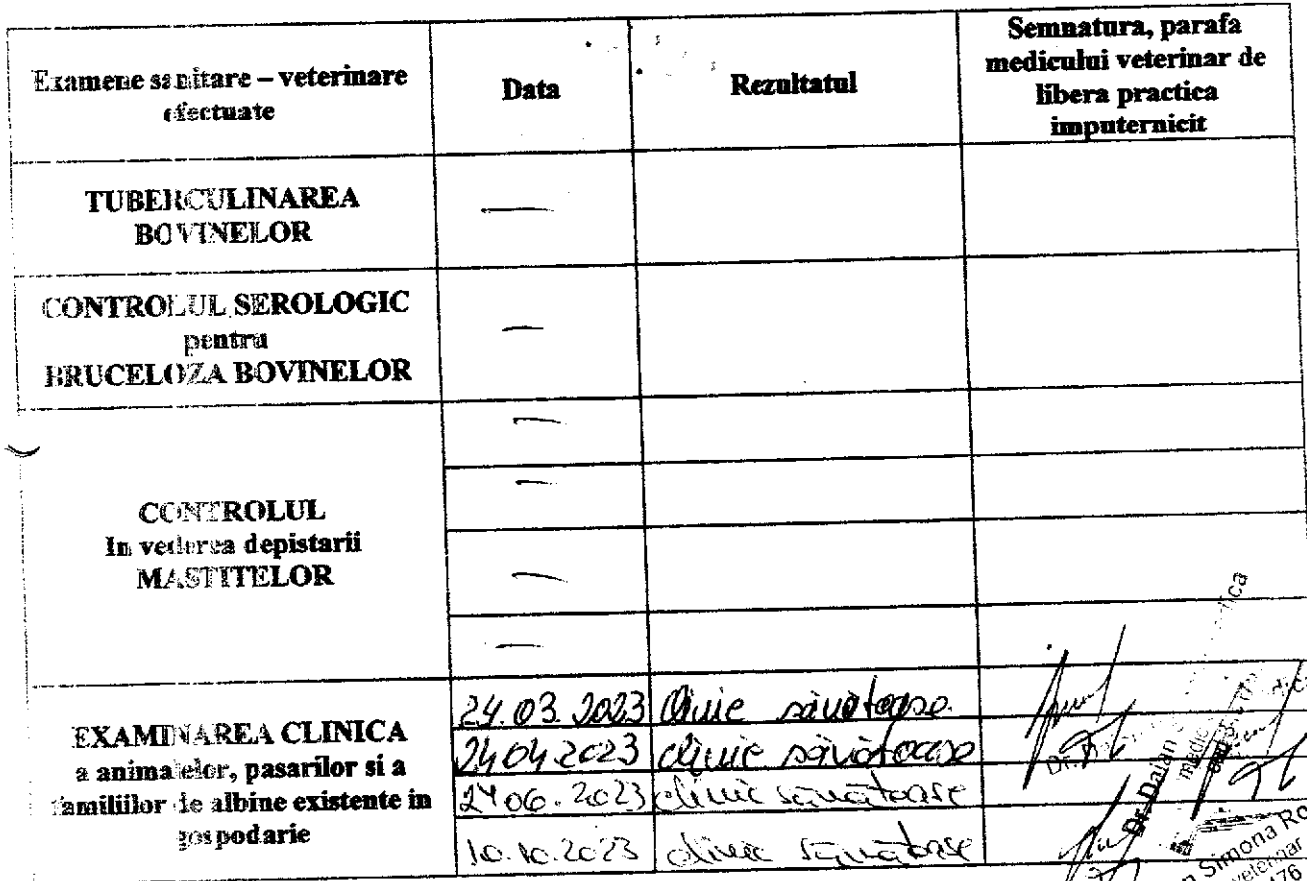 Examene sanitare – veterinare
efectuate
Data
Rezultatul
Semnatura, parafa
medicului veterinar de
libera practica
imputernicit
TUBERCULINAREA
BOVINELOR
—
CONTROLUL SEROLOGIC
pentru
BRUCELOZA BOVINELOR
—
CONTROLUL
In vederea depistarii
MASTITELOR
—
—
—
—
EXAMINAREA CLINICA
a animalelor, pasarilor si a
familiilor de albine existente in
gospodarie
24.03.2023 clinic sănătoase
24.04.2023 clinic sănătoase
24.06.2023 clinic sănătoase
10.10.2023 clinic sănătoase
Dr. Daian
medic
Simona
veterinar